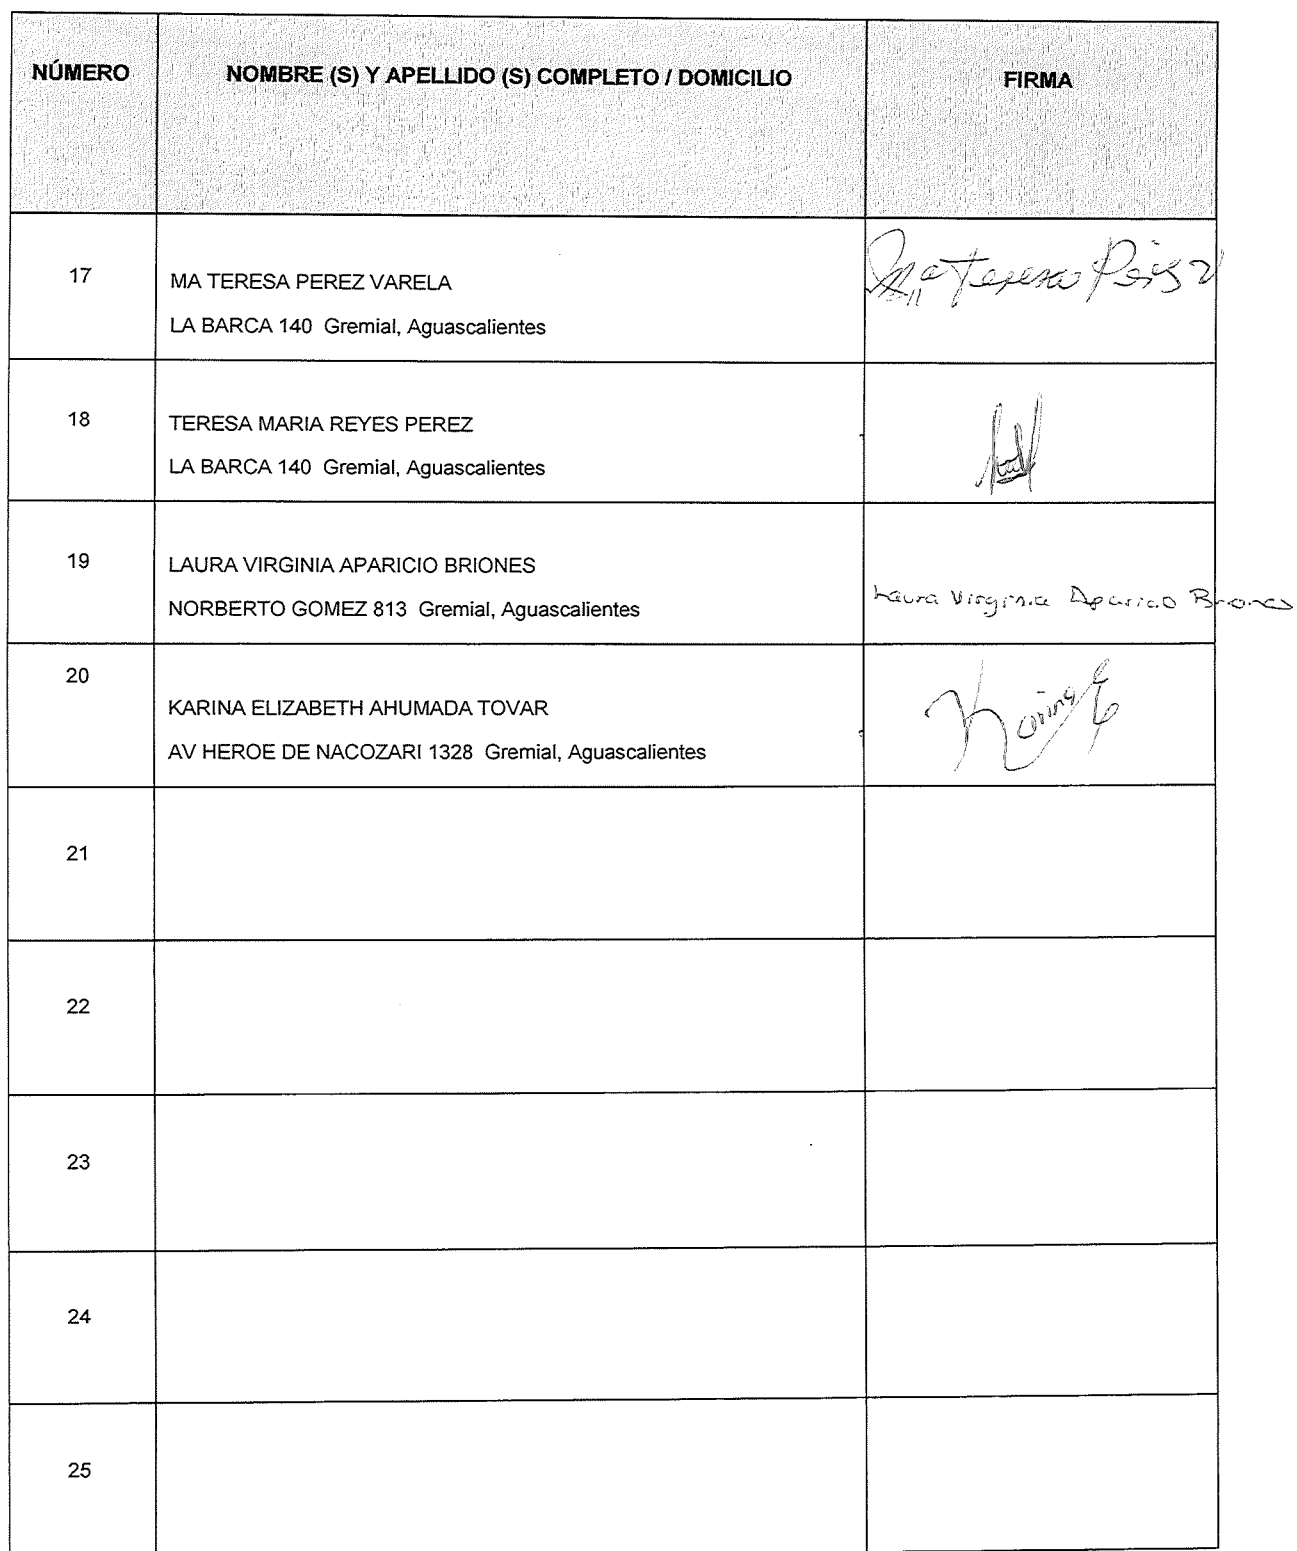 NÚMERO NOMBRE (S) Y APELLIDO (S) COMPLETO / DOMICILIO FIRMA
17
MA TERESA PEREZ VARELA
LA BARCA 140 Gremial, Aguascalientes
Ma Teresa Pérez V
18
TERESA MARIA REYES PEREZ
LA BARCA 140 Gremial, Aguascalientes
19
LAURA VIRGINIA APARICIO BRIONES
NORBERTO GOMEZ 813 Gremial, Aguascalientes
Laura Virginia Aparicio Briones
20
KARINA ELIZABETH AHUMADA TOVAR
AV HEROE DE NACOZARI 1328 Gremial, Aguascalientes
Karina E
21
22
23
24
25